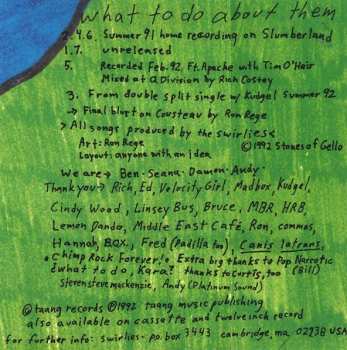 what to do about them
2.4.6. Summer 91 home recording on Slumberland
1.7. unreleased
5. Recorded Feb. 92, Ft. Apache with Tim O'Hair
Mixed at Q Division by Rich Costey
3. From double split single w/ Kudgel Summer 92
→ Final blurt on Cousteau by Ron Rege
> All songs produced by the swirlies <
Art: Ron Rege
Layout: anyone with an idea
©1992 Stones of Gello
We are → Ben · Seana · Damon · Andy ·
Thnkyou → Rich, Ed, Velocity Girl, Madbox, Kudgel,
Cindy Wood, Linsey Bus, Bruce, MBR, HRB,
Lemon Dando, Middle East Café, Ron, commas,
Hannah, B.O.X., Fred (Padilla too), Canis latrans,
Chimp Rock Forever! Extra big thanks to Pop Narcotic
dwhat to do, Kara? thanks to Curtis, too (Bill)
Steven steve mackenzie, Andy (Platinum Sound)
© taang records ©1992 taang music publishing
also available on cassette and twelve inch record
for further info: swirlies - p.o. box 3443 cambridge, ma 02238 USA